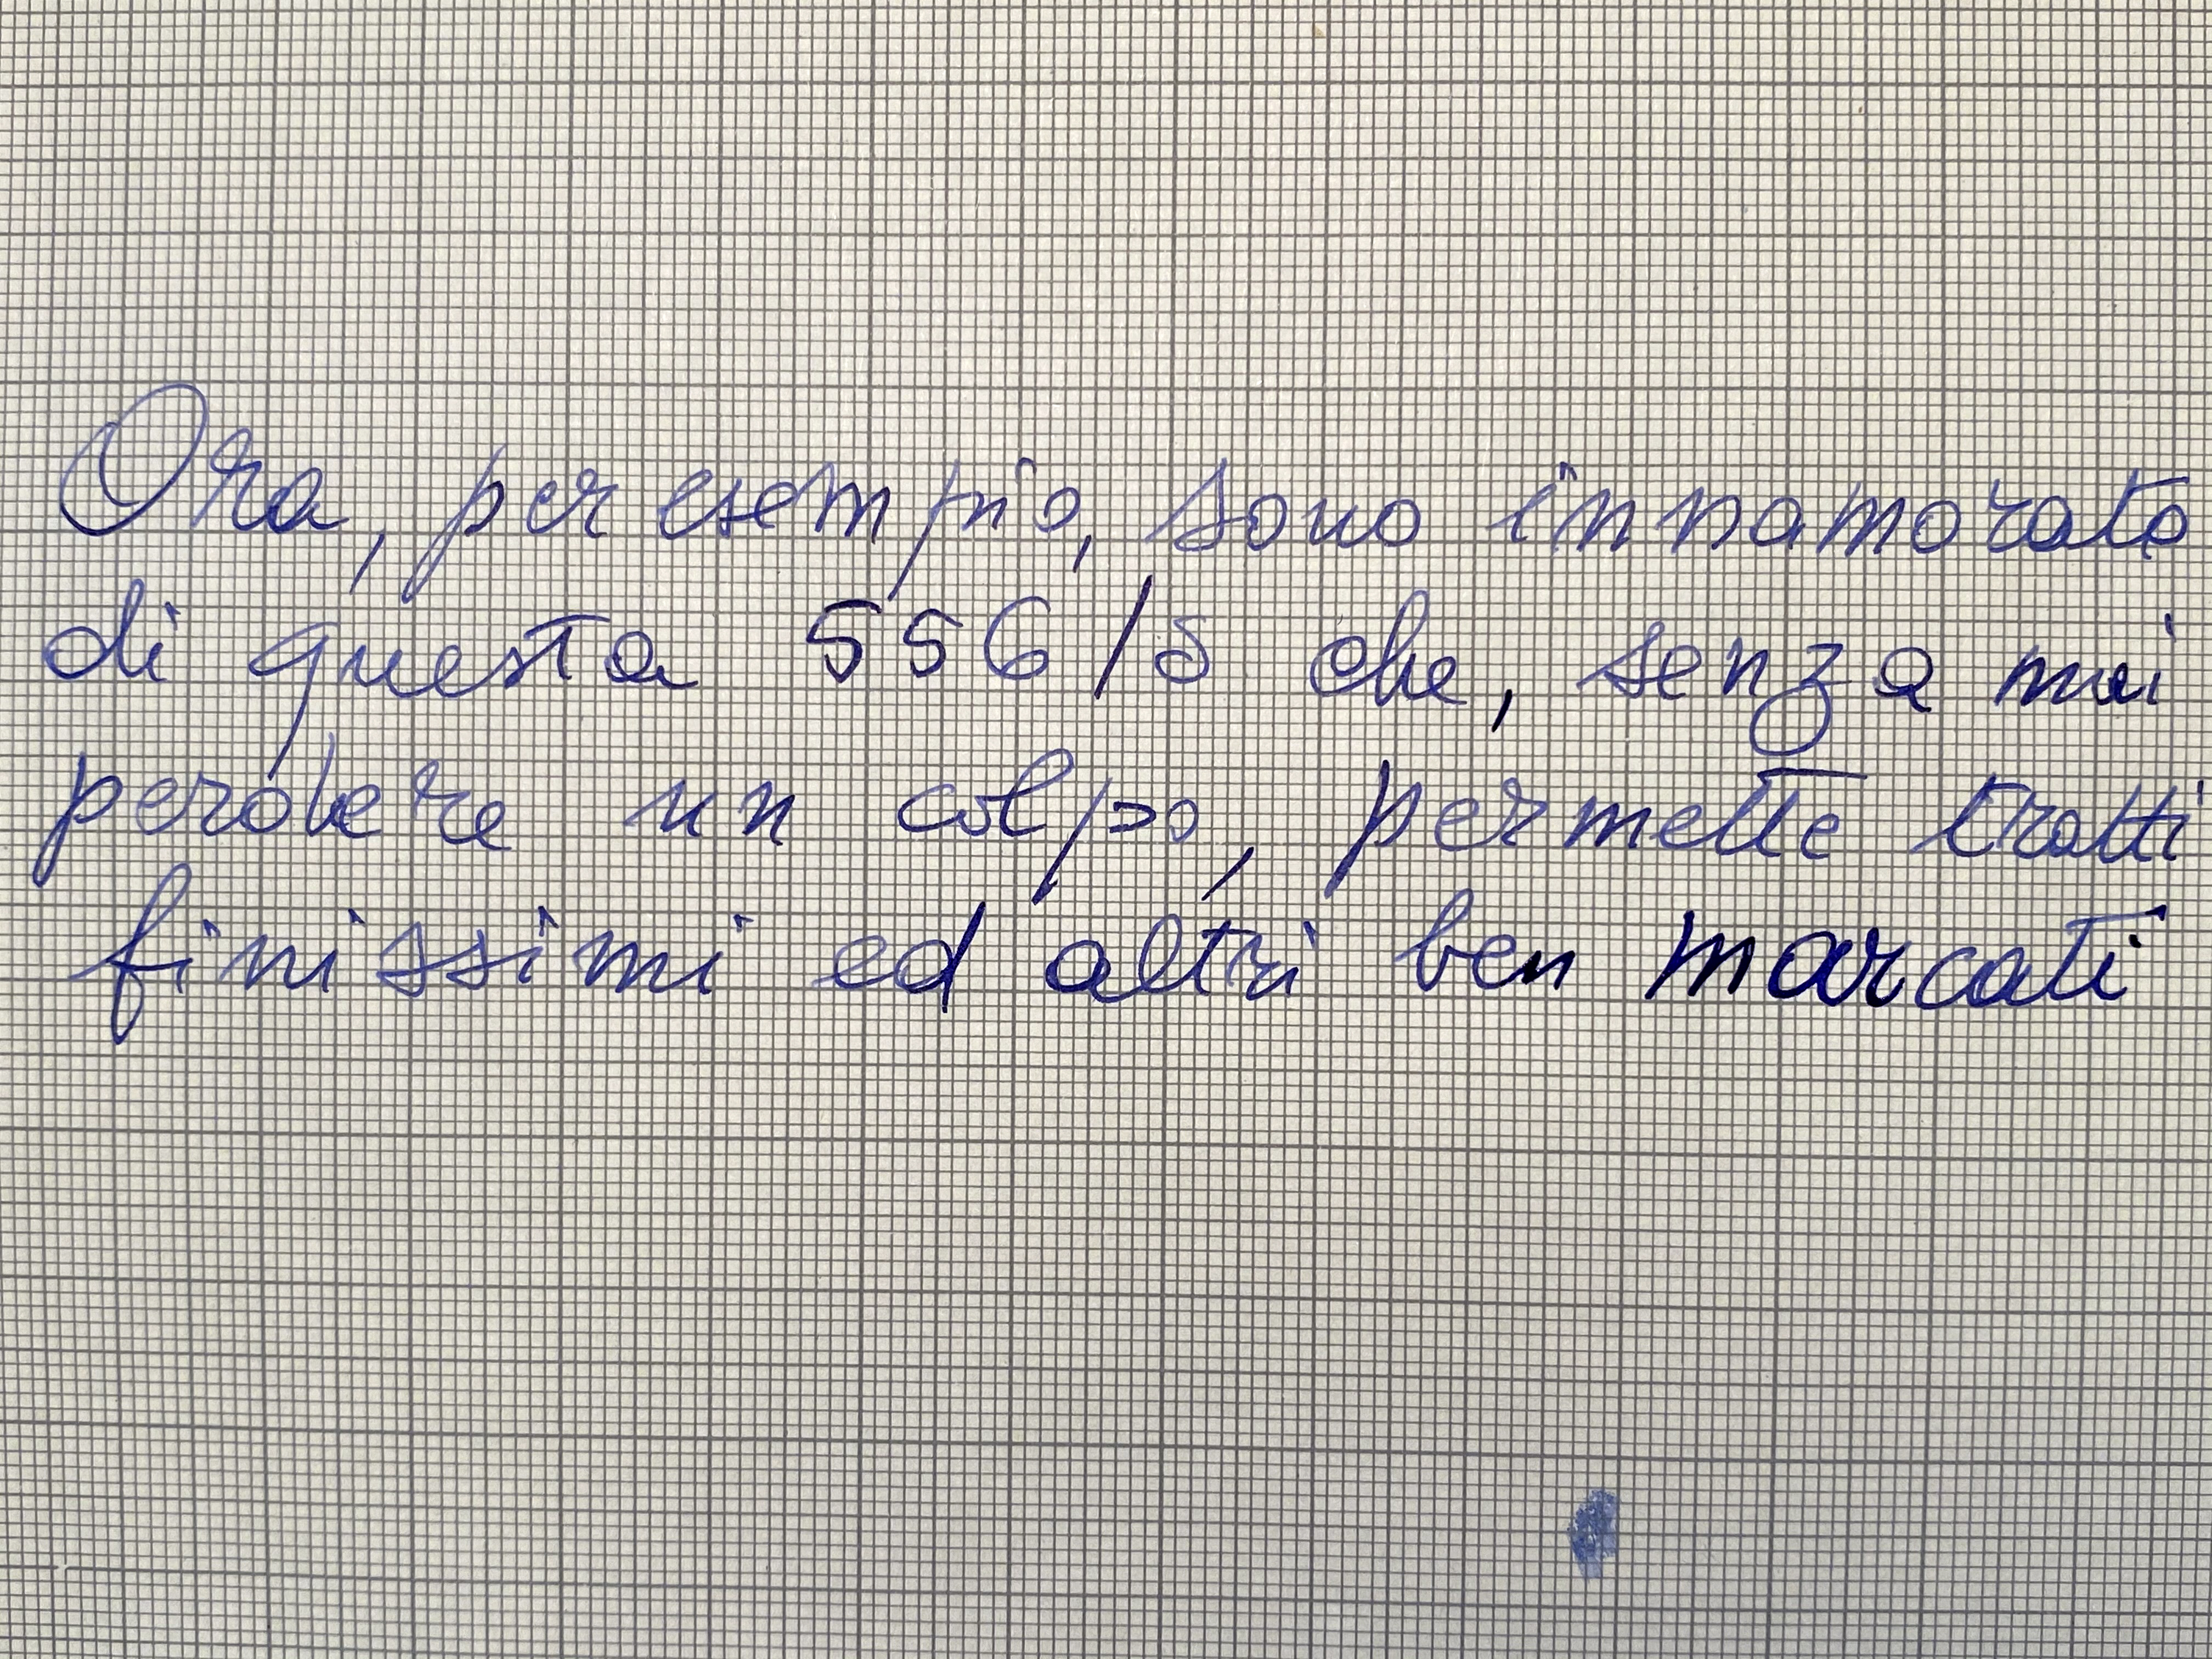 Ora, per esempio, sono innamorato
di questa 556/5 che, senza mai
perdere un colpo, permette tratti
finissimi ed altri ben marcati